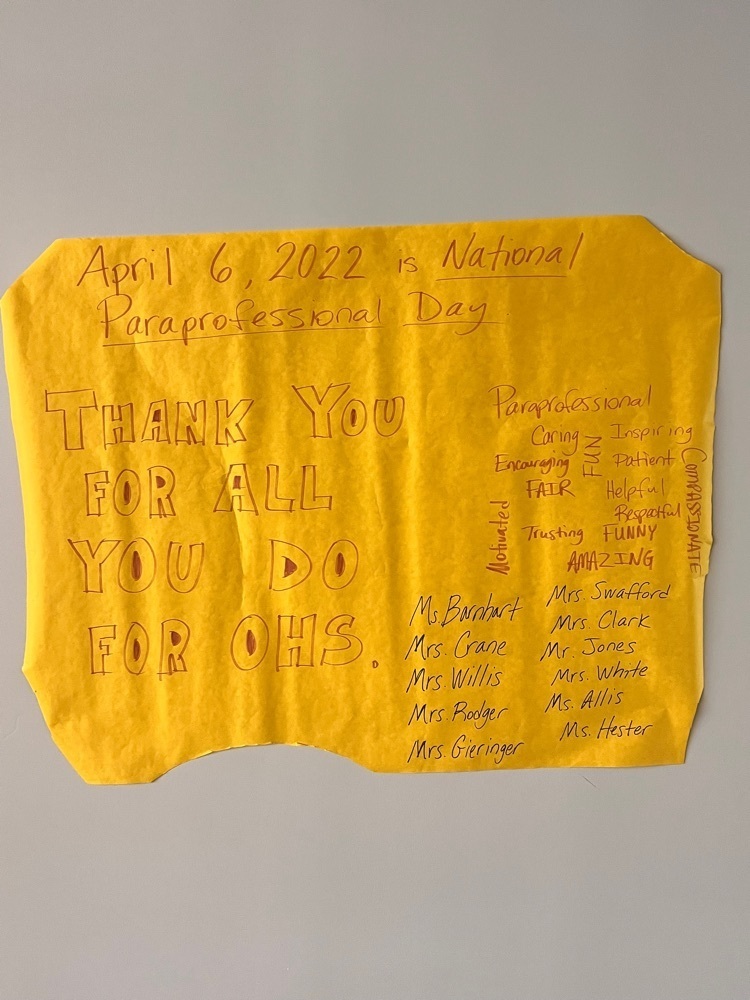 April 6, 2022 is National
Paraprofessional Day
THANK YOU
FOR ALL
YOU DO
FOR OHS.
Paraprofessional
Caring
FUN
Inspiring
Encouraging
Patient
COMPASSIONATE
FAIR
Helpful
Respectful
Motivated
Trusting
FUNNY
AMAZING
Ms. Barnhart
Mrs. Crane
Mrs. Willis
Mrs. Rodger
Mrs. Gieringer
Mrs. Swafford
Mrs. Clark
Mr. Jones
Mrs. White
Ms. Allis
Ms. Hester